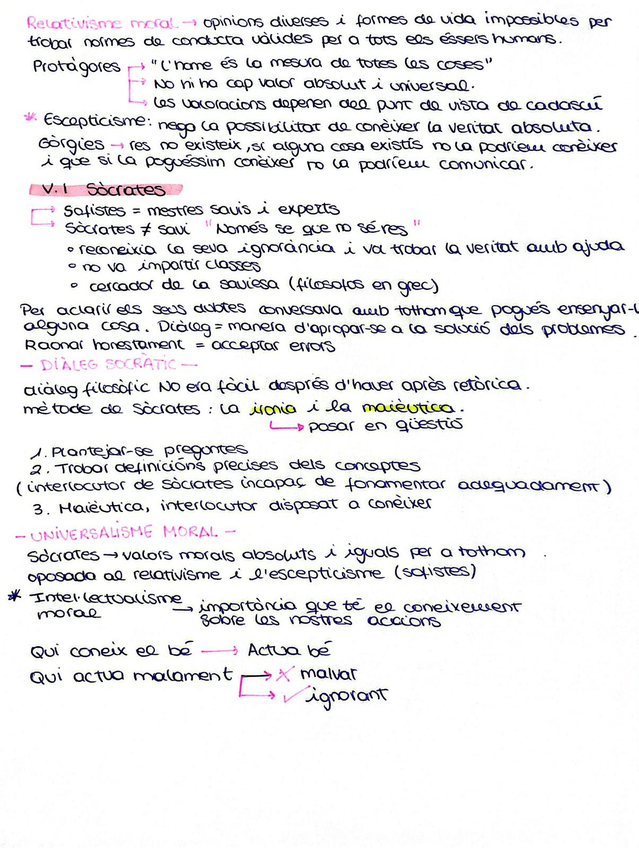 Relativisme moral → opinions diverses i formes de vida impossibles per
trobar normes de conducta vàlides per a tots els éssers humans.
Protàgores → "L'home és la mesura de totes les coses"
→ No hi ha cap valor absolut i universal.
→ Les valoracions depenen del punt de vista de cadascú
* Escepticisme: nega la possibilitat de conèixer la veritat absoluta.
Gòrgies → res no existeix, si alguna cosa existís no la podríem conèixer
i que si la poguéssim conèixer no la podríem comunicar.
V.I Sòcrates
→ Sofistes = mestres savis i experts
→ Sòcrates ≠ savi "Només se que no sé res"
° reconeixia la seva ignorància i va trobar la veritat amb ajuda
° no va impartir classes
° cercador de la saviesa (filosofos en grec)
Per aclarir els seus dubtes conversava amb tothom que pogués ensenyar-l
alguna cosa. Diàleg = manera d'apropar-se a la solució dels problemes.
Raonar honestament = acceptar errors
- DIÀLEG SOCRÀTIC -
diàleg filosòfic NO era fàcil després d'haver après retòrica.
mètode de Sòcrates: la ironia i la maièutica.
→ posar en qüestió
1. Plantejar-se preguntes
2. Trobar definicións precises dels conceptes
(interlocutor de Sòcrates incapaç de fonamentar adequadament)
3. Maièutica, interlocutor disposat a conèixer
- UNIVERSALISME MORAL -
Sòcrates → valors morals absoluts i iguals per a tothom.
oposada al relativisme i l'escepticisme (sofistes)
* Intel·lectualisme
moral → importància que té el coneixement
sobre les nostres accions
Qui coneix el bé → Actua bé
Qui actua malament → ✗ malvat
→ ✓ ignorant